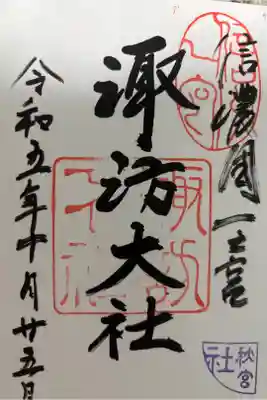 信濃國一之宮
諏訪大社
令和五年十月廿五日
秋宮
社